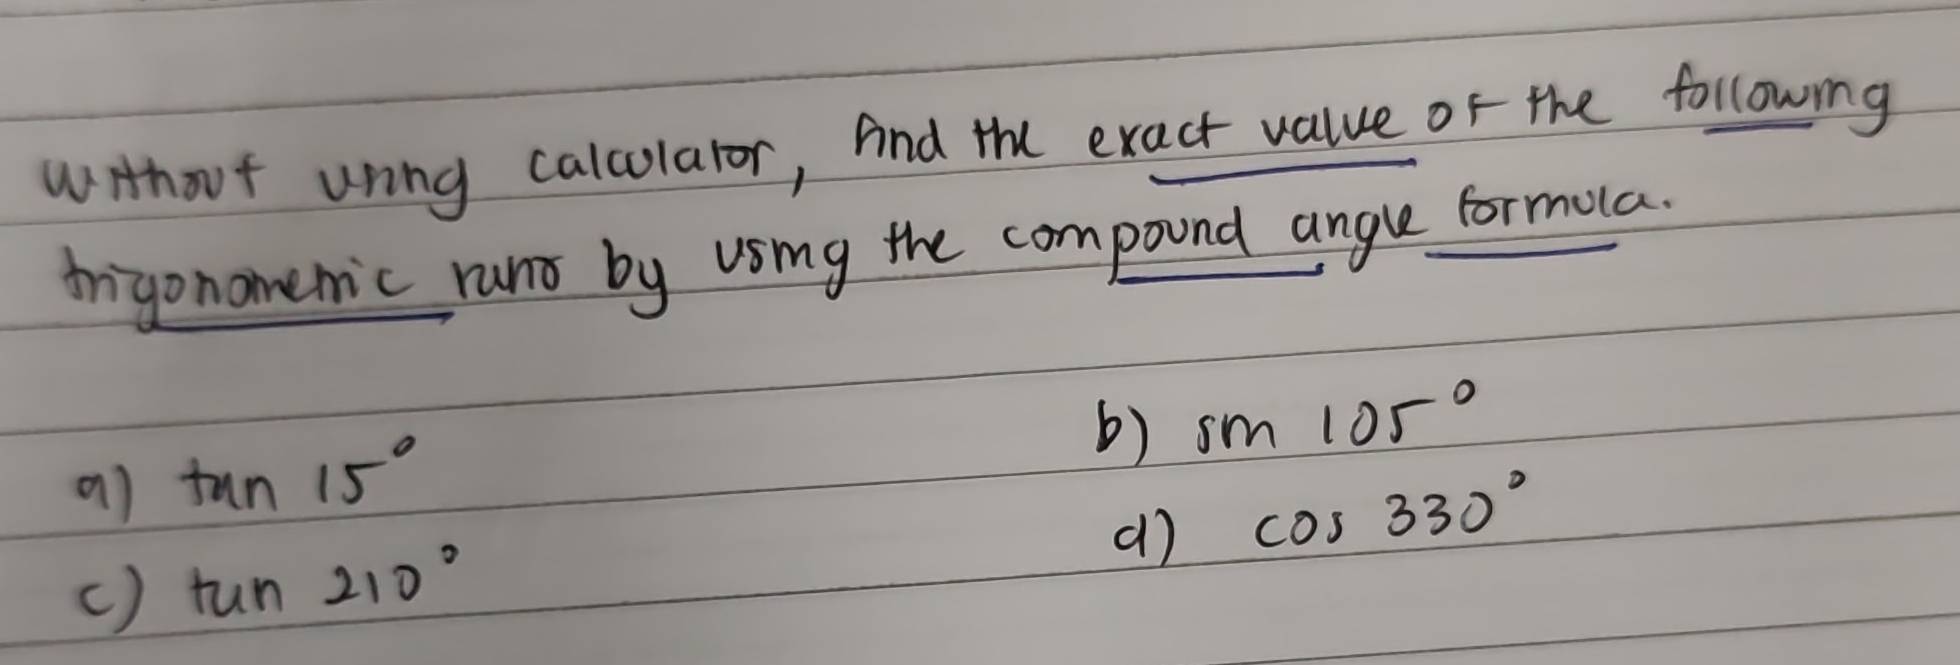 without using calculator, find the exact value of the following
trigonometric ratio by using the compound angle formula.
a) tan 15° b) sin 105°
c) tan 210° d) cos 330°